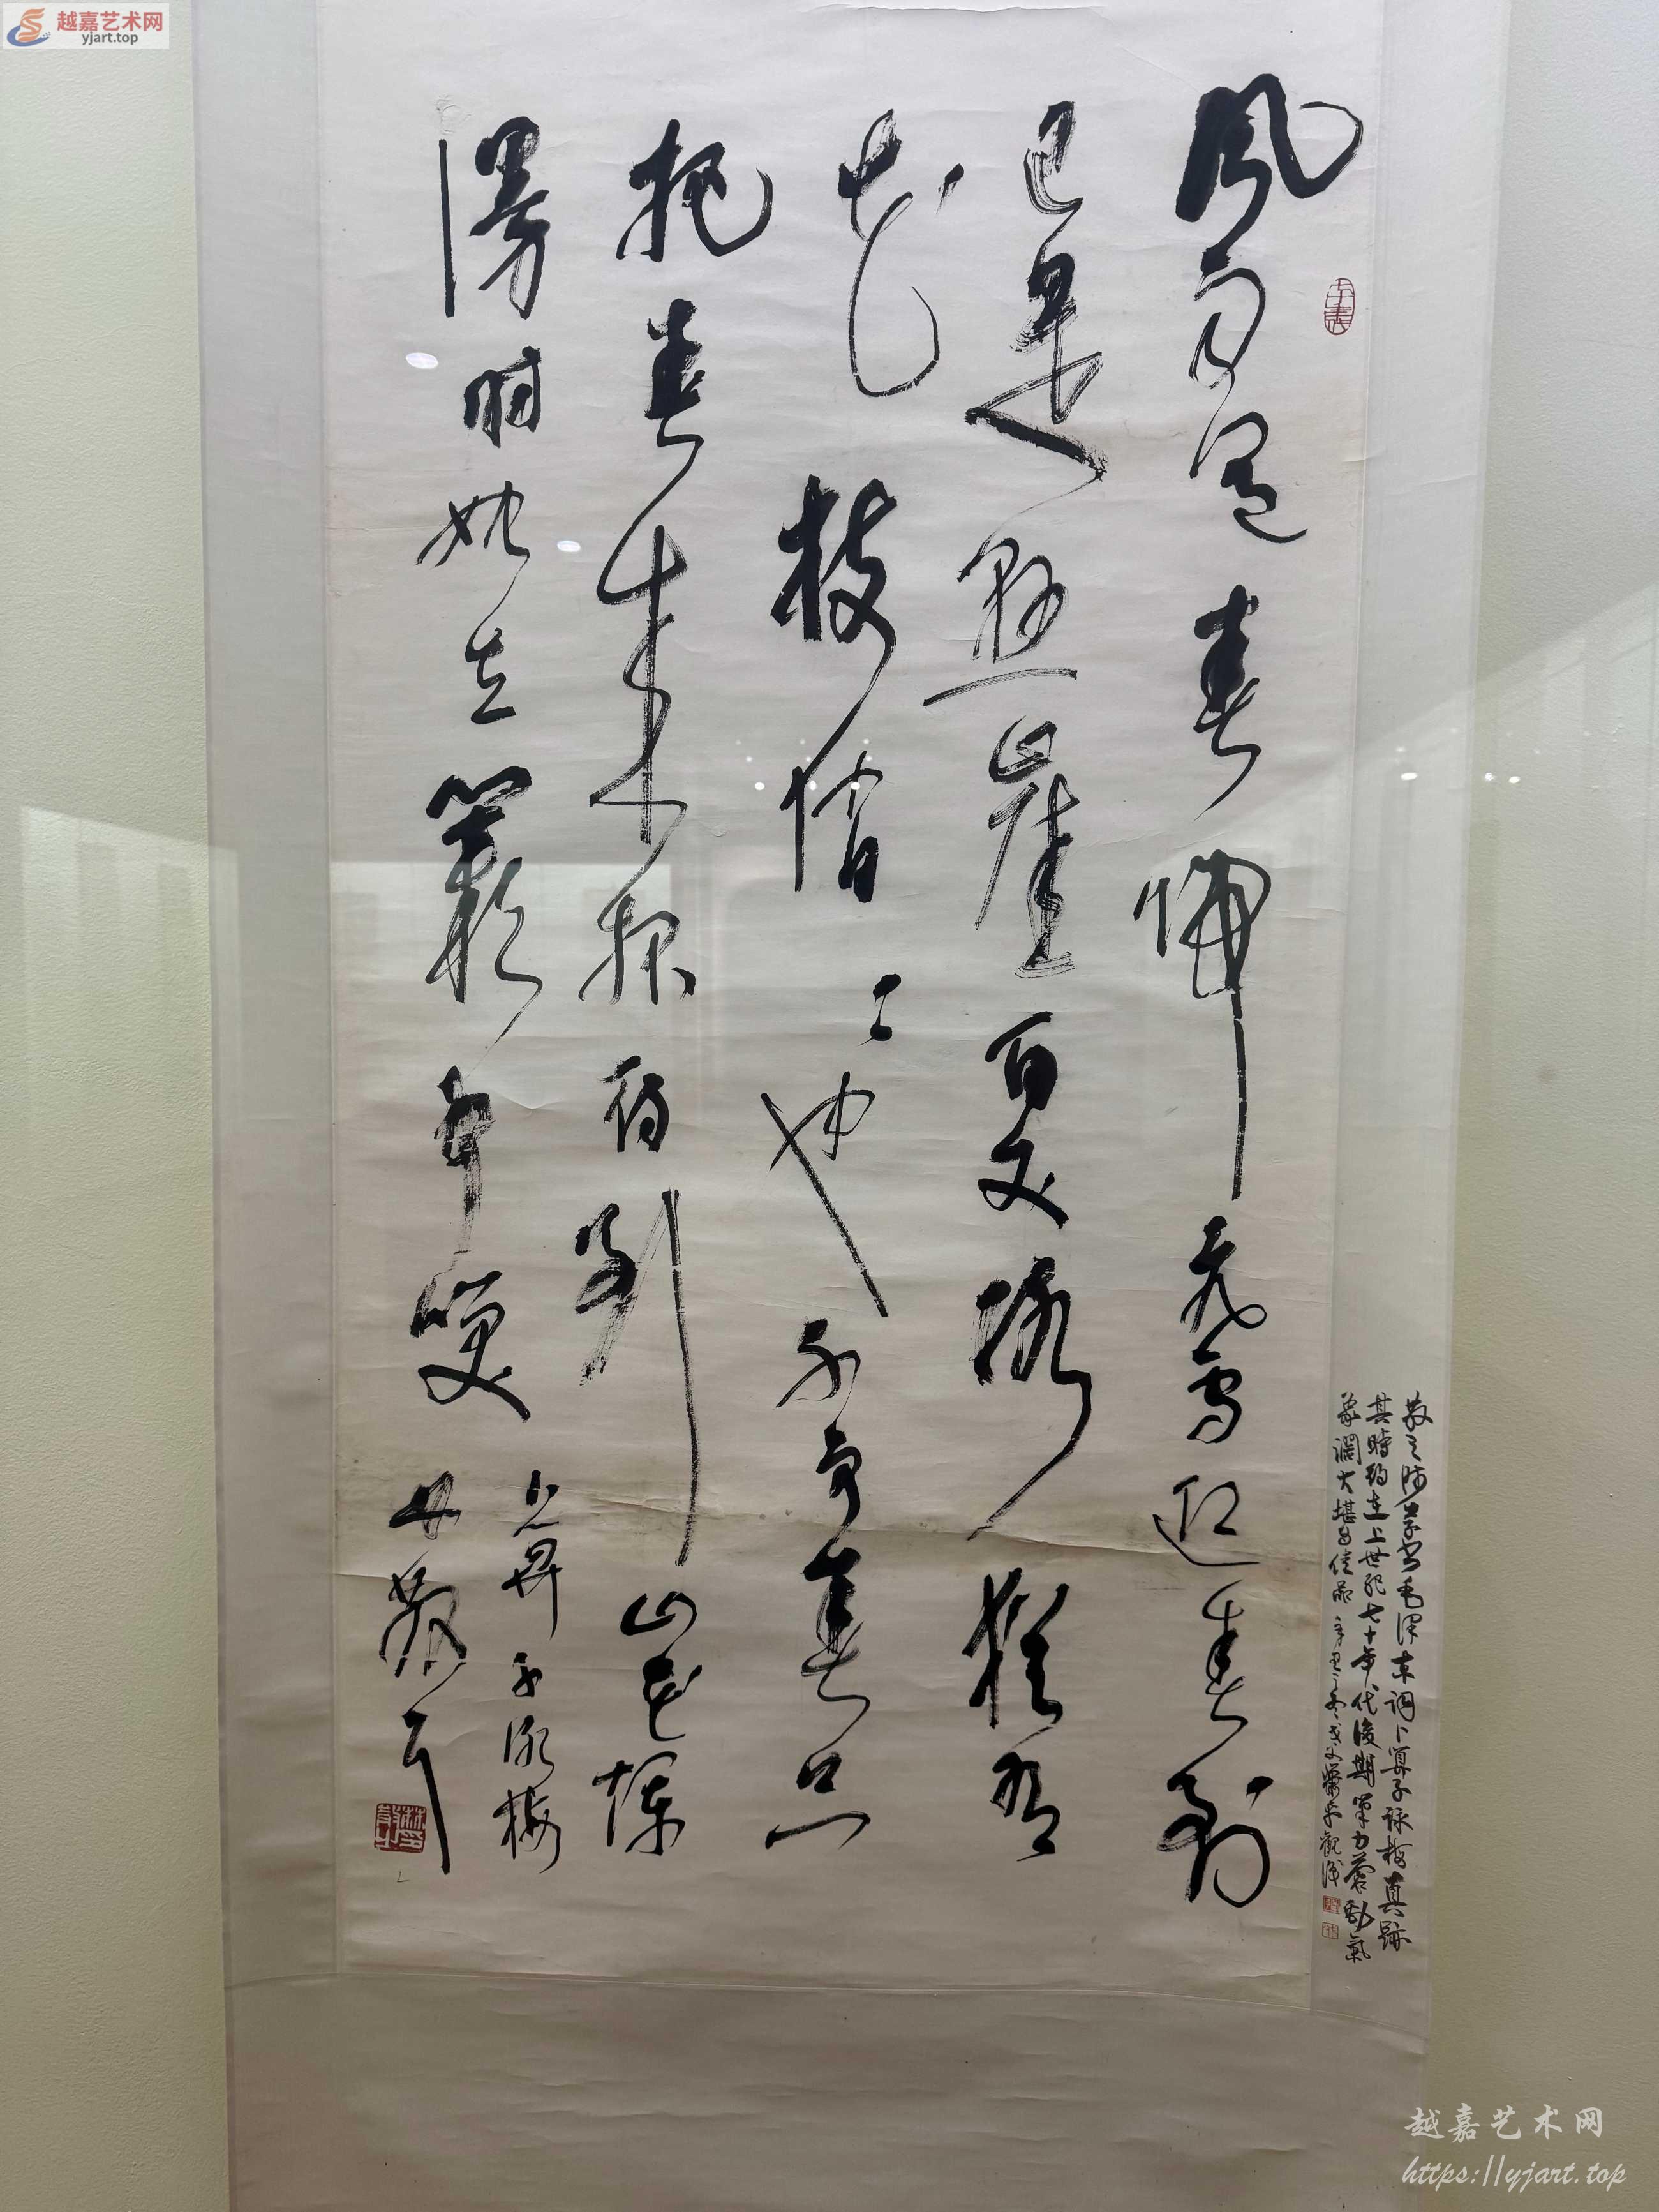 越嘉艺术网
yjart.top
風雨送春歸飛雪迎春到
已是懸崖百丈冰猶有
花枝俏〻也不爭春只
把春來報待到山花爛
漫时她在叢中笑
卜算子咏梅
林散耳
散之师草书毛泽东词卜算子詠梅真跡
其時約在上世纪七十年代後期筆力蒼勁氣
象濶大堪為佳品辛丑冬
越嘉艺术网
https://yjart.top